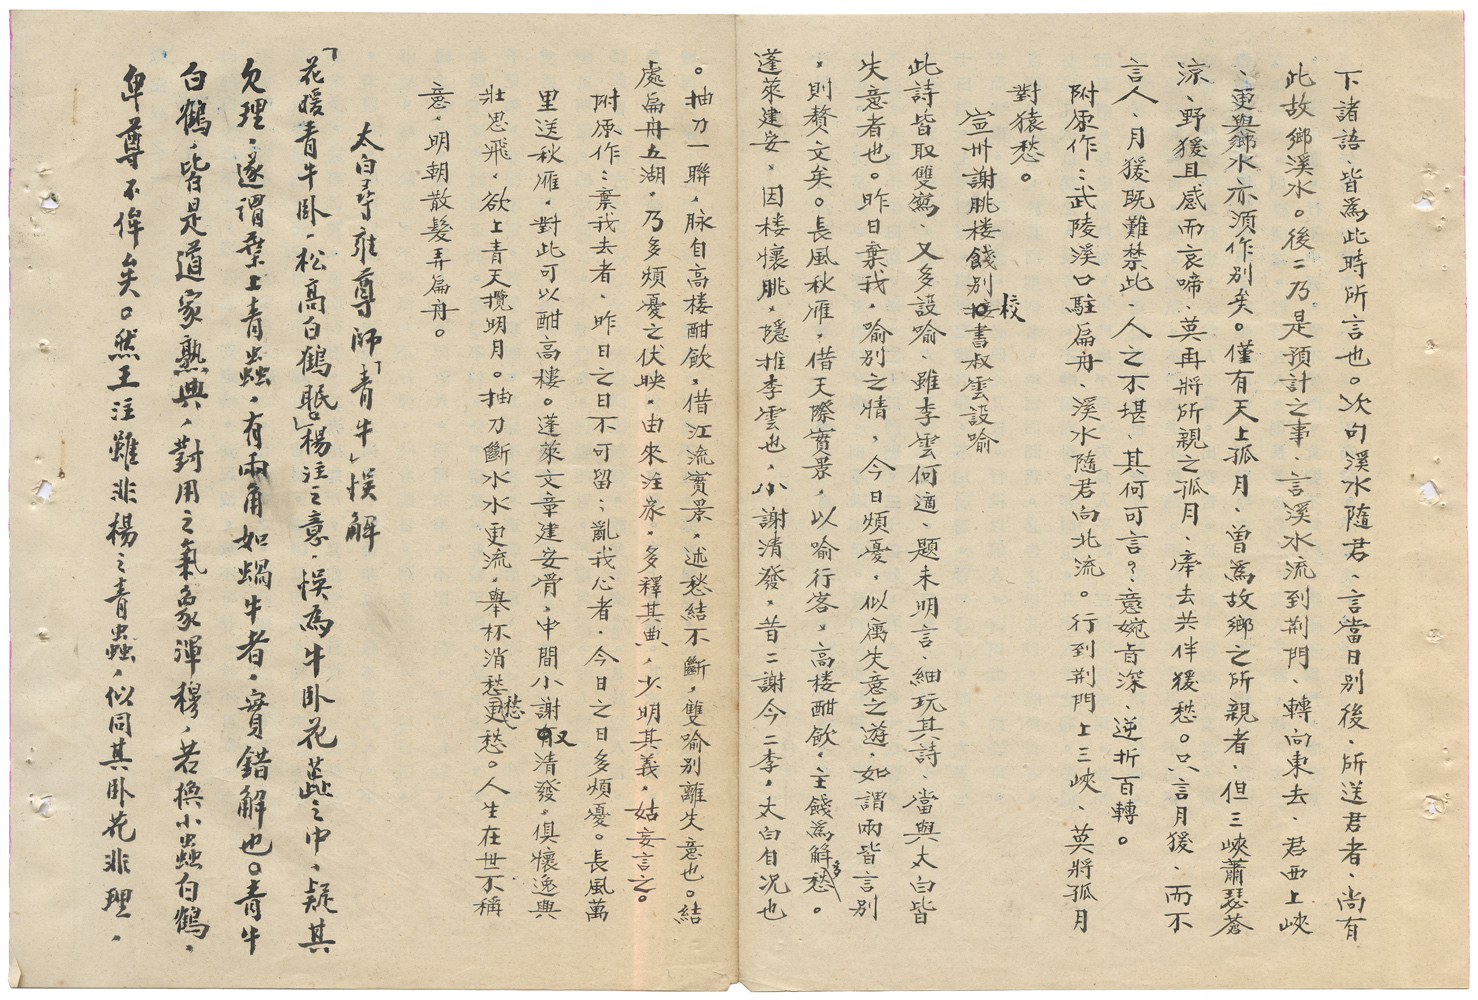 下諸語、皆為此時所言也。次句溪水隨君、言當日別後、所送君者、尚有
此故鄉溪水。後二乃是預計之事、言溪水流到荆門、轉向東去、君西上峽
、更與鄉水亦須作別矣。僅有天上孤月、曾為故鄉之所親者、但三峽蕭瑟蒼
涼、野猨且感而哀啼、莫再將所親之孤月、牽去共伴猨愁。只言月猨、而不
言人、月猨既難禁此、人之不堪、其何可言？意婉旨深、逆折百轉。
附原作：武陵溪口駐扁舟、溪水隨君向北流。行到荆門上三峽、莫將孤月
對猿愁。
宣州謝眺楼餞別校書叔雲設喻
此詩皆取雙寫、又多設喻、雖李雲何適、題未明言、細玩其詩、當與太白皆
失意者也。昨日棄我，喻別之情，今日煩憂，似寓失意之遊，如謂兩皆言別
，則贅文矣。長風秋雁，借天際實景，以喻行客，高楼酣飲，主餞為解愁。
蓬萊建安，因楼懷眺，隱推李雲也，小謝清發，昔二謝今二李，太白自况也
。抽刀一聯，脉自高楼酣飲，借江流實景，述愁結不斷，雙喻別離失意也。結
處扁舟五湖，乃多煩憂之伏映，由來注家，多釋其典，少明其義，姑妄言之。
附原作：棄我去者、昨日之日不可留；亂我心者，今日之日多煩憂。長風萬
里送秋雁，對此可以酣高樓。蓬萊文章建安骨，中間小謝又清發，俱懷逸興
壯思飛，欲上青天攬明月。抽刀斷水水更流，舉杯消愁愁更愁。人生在世不稱
意，明朝散髮弄扁舟。
太白尋雍尊師「青牛」悞解
「花暖青牛卧，松高白鶴眠」楊注之意，悞為牛卧花蕋之中，疑其
欠理，遂謂葉上青蟲，有兩角如蝸牛者，實錯解也。青牛
白鶴，皆是道家熟典，對用之氣象渾穆，若換小蟲白鶴，
卑尊不侔矣。然王注雖非楊之青蟲，似同其卧花非理，